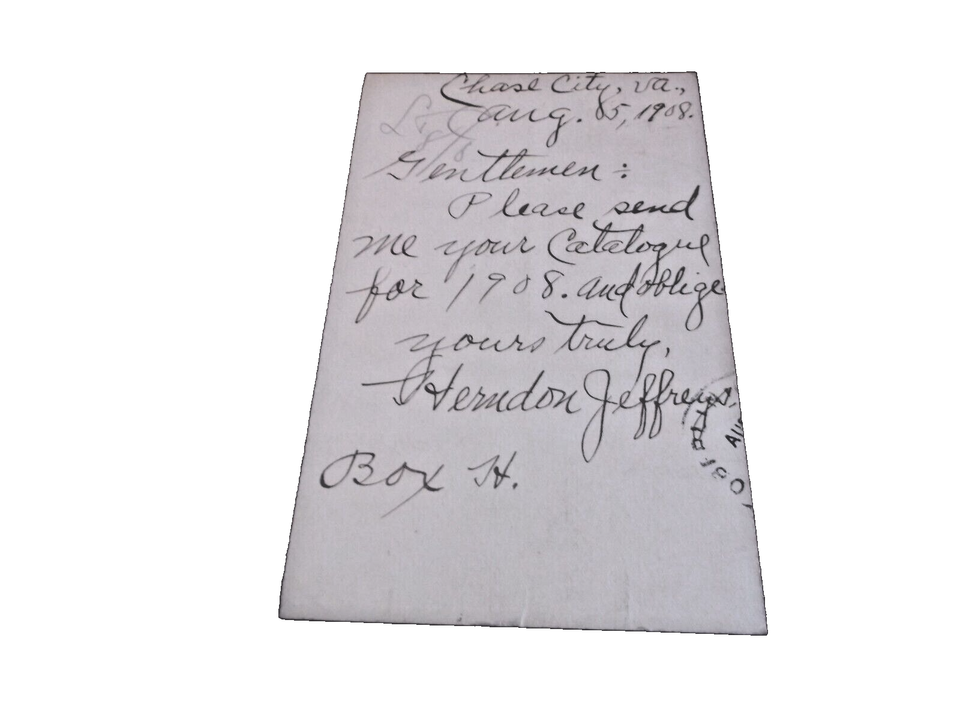 Chase City, Va.,
Aug. 5, 1908.
Gentlemen:
Please send
me your Catalogue
for 1908. and oblige
yours truly,
Herndon Jeffreys.
Box H.